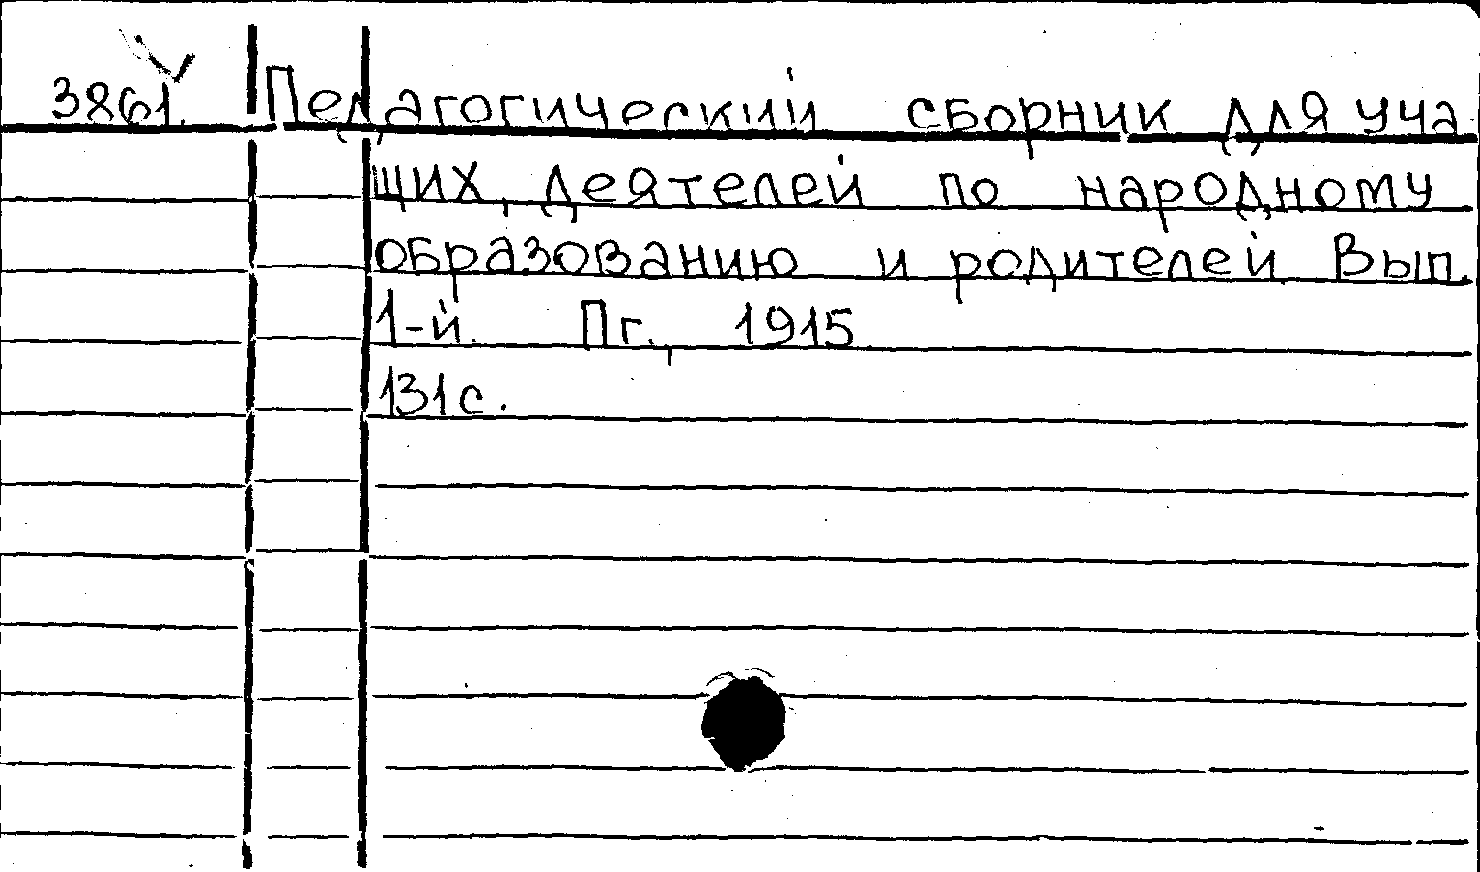 3861. Педагогический сборник для уча
щих, деятелей по народному
образованию и родителей Вып.
1-й. Пг., 1915
131с.